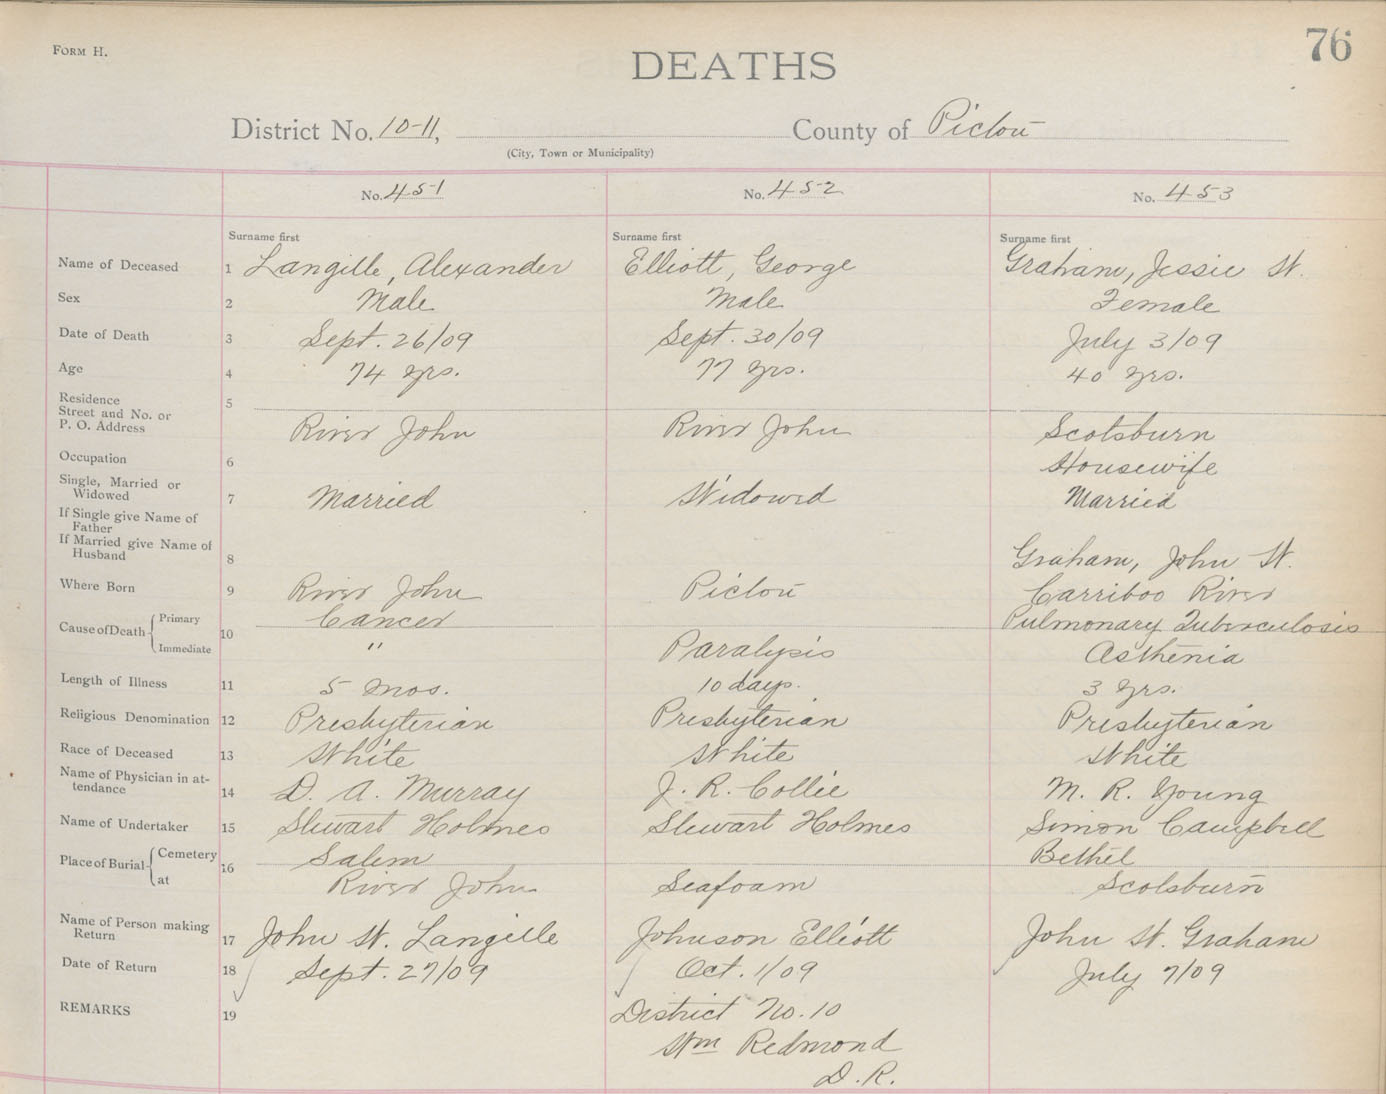 FORM H.
76
DEATHS
District No. 10-11, County of Pictou
(City, Town or Municipality)
No. 451 No. 452 No. 453
Surname first Surname first Surname first
Name of Deceased 1 Langille, Alexander Elliott, George Graham, Jessie W.
Sex 2 Male Male Female
Date of Death 3 Sept. 26/09 Sept. 30/09 July 3/09
Age 4 74 yrs. 77 yrs. 40 yrs.
Residence 5
Street and No. or
P. O. Address River John River John Scotsburn
Occupation 6 Housewife
Single, Married or
Widowed 7 Married Widowed Married
If Single give Name of
Father
If Married give Name of
Husband 8 Graham, John W.
Where Born 9 River John Pictou Carriboo River
Cause of Death Primary 10 Cancer Pulmonary Tuberculosis
Immediate " Paralysis Asthenia
Length of Illness 11 5 mos. 10 days. 3 yrs.
Religious Denomination 12 Presbyterian Presbyterian Presbyterian
Race of Deceased 13 White White White
Name of Physician in at-
tendance 14 D. A. Murray J. R. Collie M. R. Young
Name of Undertaker 15 Stewart Holmes Stewart Holmes Simon Campbell
Place of Burial Cemetery 16 Salem Bethel
at River John Seafoam Scotsburn
Name of Person making
Return 17 John W. Langille Johnson Elliott John W. Graham
Date of Return 18 Sept. 27/09 Oct. 1/09 July 7/09
REMARKS 19 District No. 10
Wm Redmond
D. R.